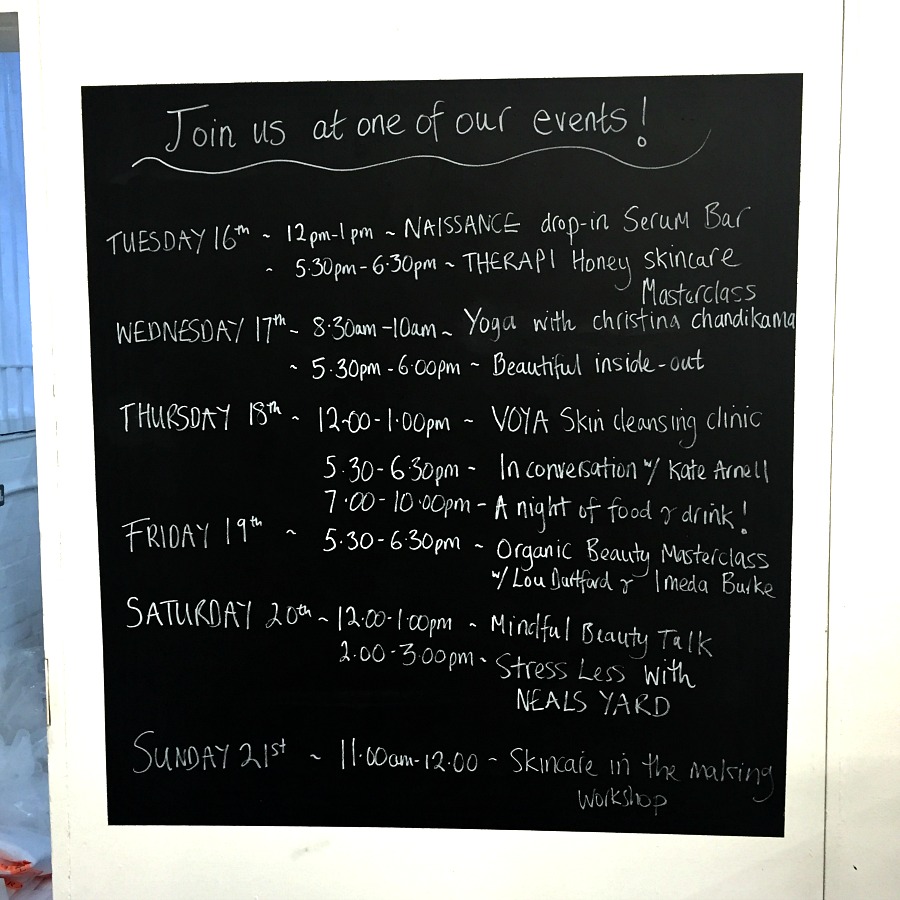 Join us at one of our events!
TUESDAY 16th ~ 12pm-1pm ~ NAISSANCE drop-in Serum Bar
~ 5.30pm-6.30pm ~ THERAPI Honey skincare
Masterclass
WEDNESDAY 17th ~ 8.30am-10am ~ Yoga with christina chandikama
~ 5.30pm-6.00pm ~ Beautiful inside-out
THURSDAY 18th ~ 12.00-1.00pm ~ VOYA Skin cleansing clinic
5.30-6.30pm - In conversation w/ Kate Arnell
7.00-10.00pm - A night of food & drink!
FRIDAY 19th ~ 5.30-6.30pm ~ Organic Beauty Masterclass
w/ Lou Dartford & Imeda Burke
SATURDAY 20th ~ 12.00-1.00pm ~ Mindful Beauty Talk
2.00-3.00pm ~ Stress Less with
NEALS YARD
SUNDAY 21st ~ 11.00am-12.00 ~ Skincare in the making
Workshop